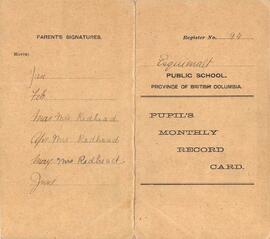 PARENT'S SIGNATURES.
MONTH:
Jan
Feb
Mar Mrs Redhead
Apr Mrs Redhead
May Mrs Redhead
June
Register No. 94
Esquimalt
PUBLIC SCHOOL.
PROVINCE OF BRITISH COLUMBIA.
PUPIL'S
MONTHLY
RECORD
CARD.